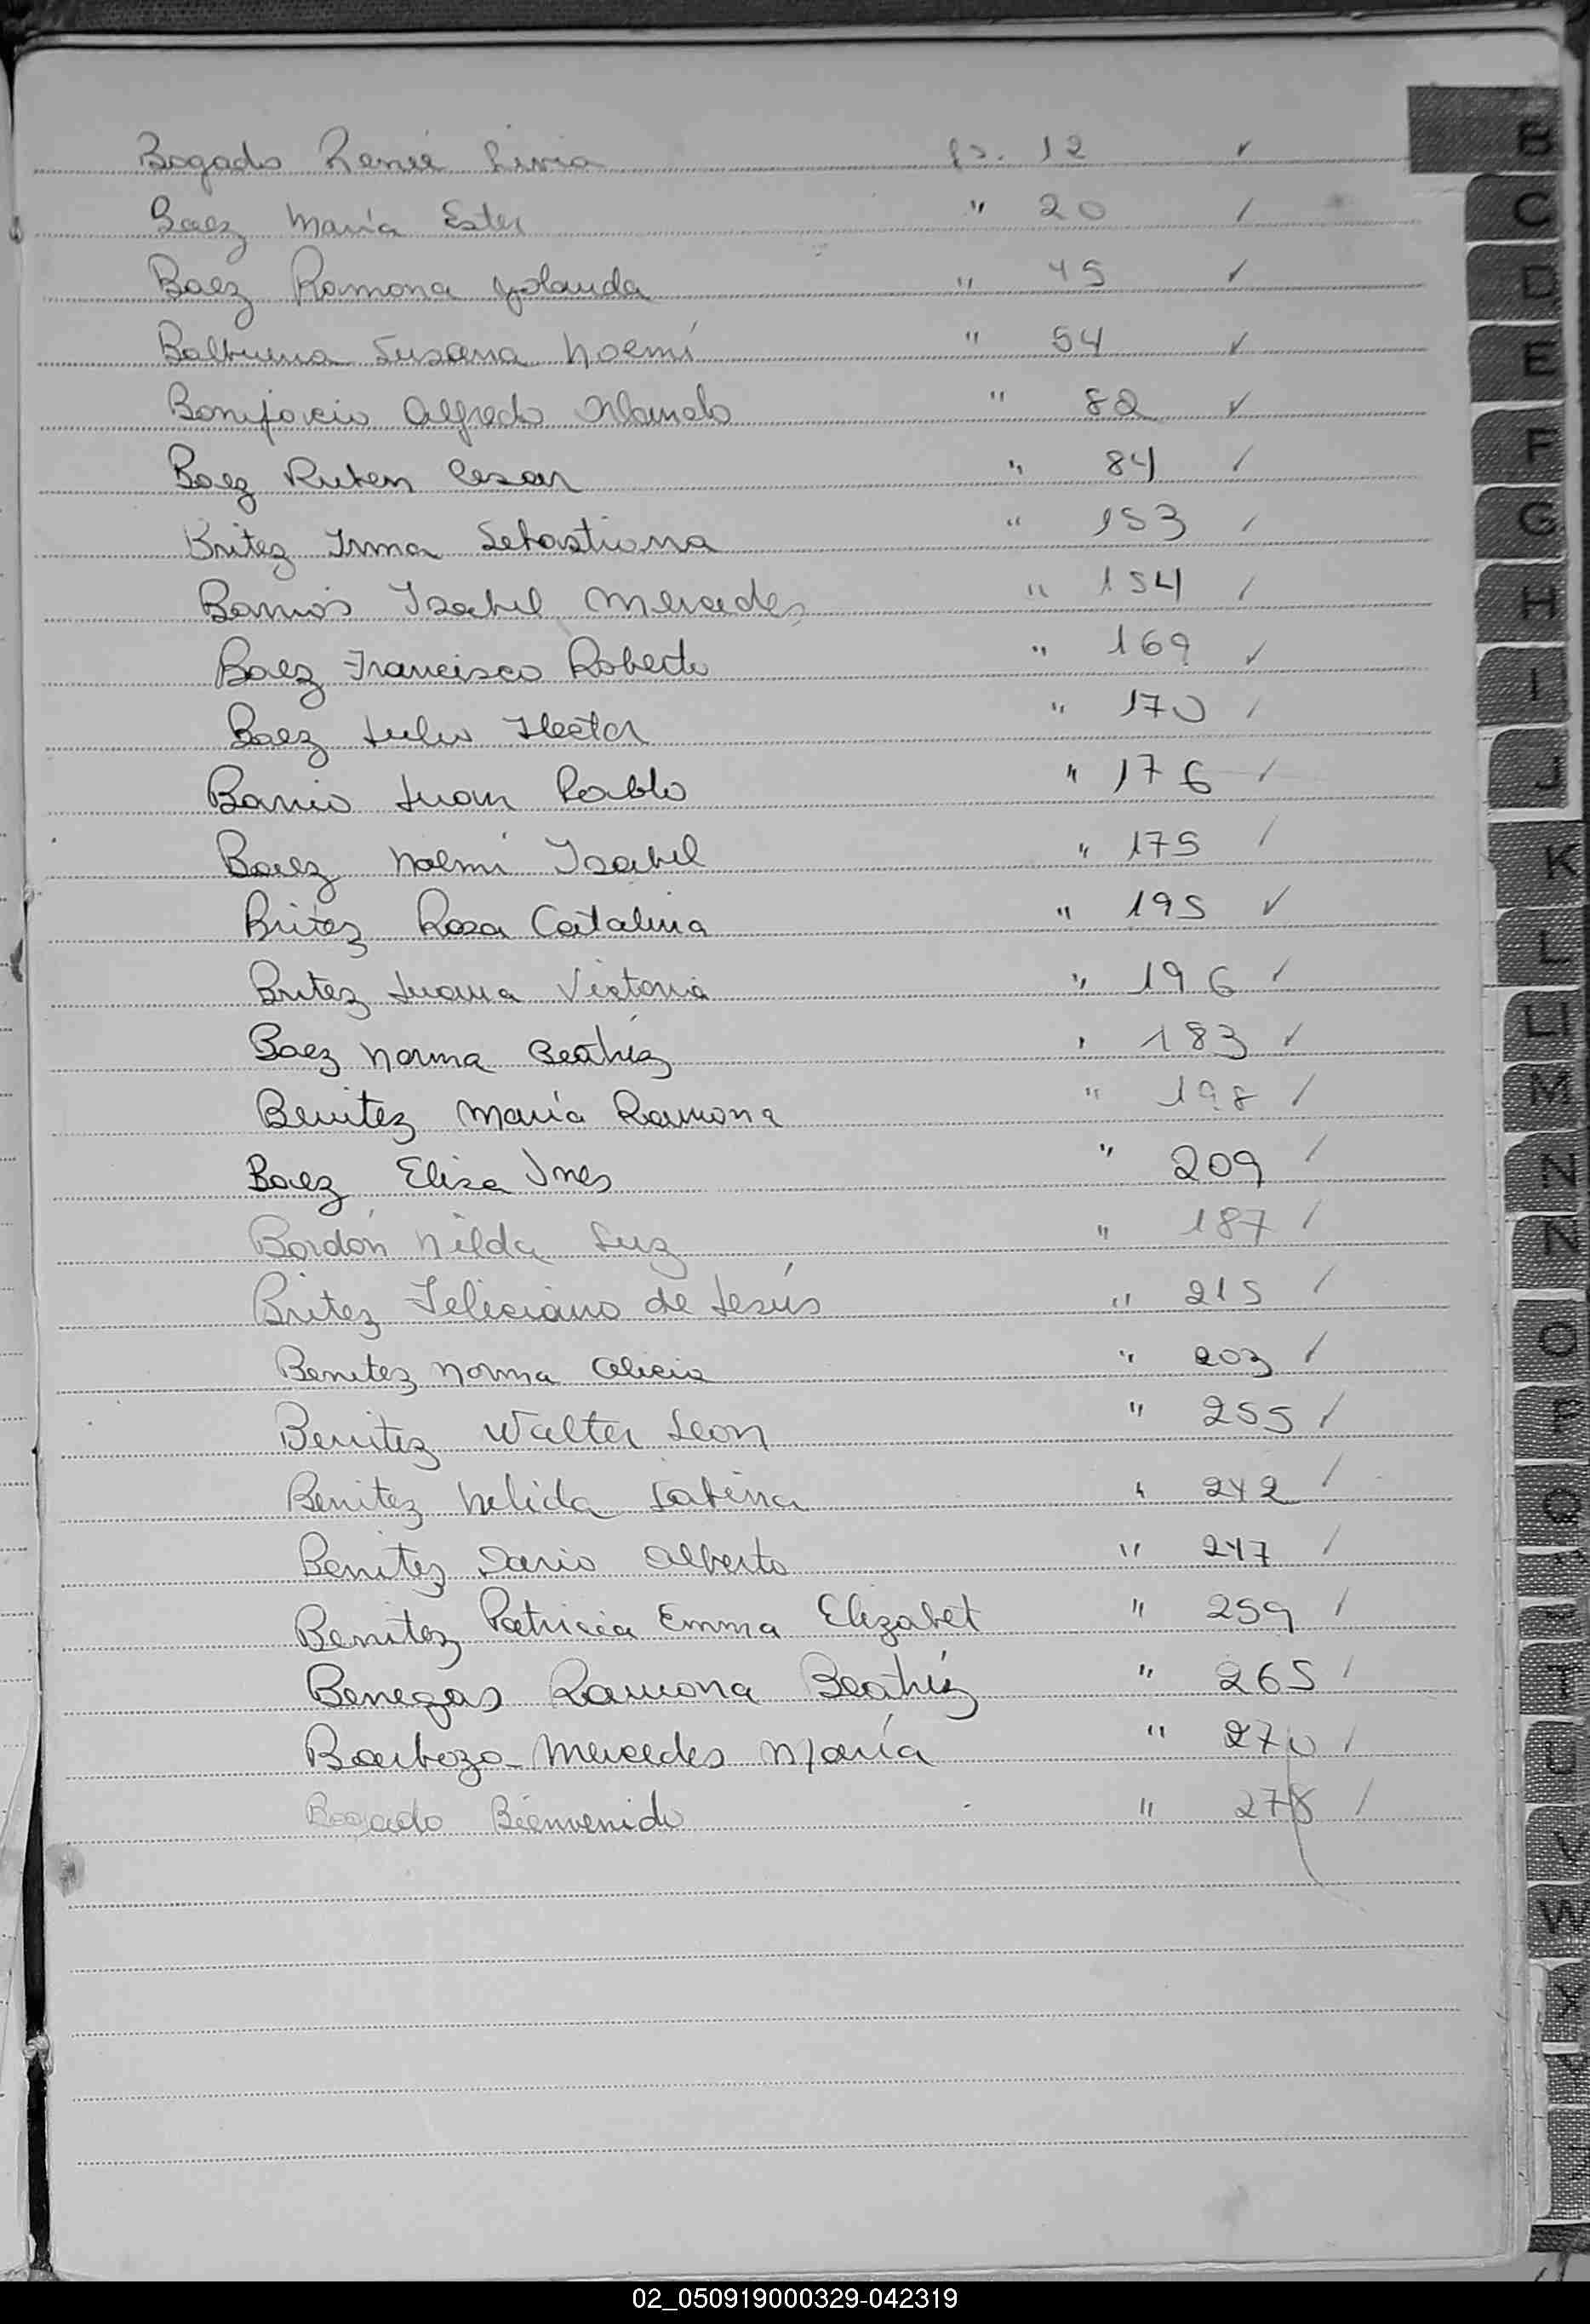 Bogado Reneé Livia fs. 12 ✓
Baez María Ester " 20 ✓
Baez Ramona Yolanda " 45 ✓
Balbuena Susana Noemí " 54 ✓
Bonifacio Alfredo Orlando " 82 ✓
Baez Ruben Cesar " 84 ✓
Britez Irma Sebastiana " 153 ✓
Barrios Isabel Mercedes " 154 ✓
Baez Francisco Roberto " 169 ✓
Baez Julio Hector " 170 ✓
Barrio Juan Pablo " 176 ✓
Baez Noemí Isabel " 175 ✓
Britez Rosa Catalina " 195 ✓
Britez Juana Victoria " 196 ✓
Baez Norma Beatríz " 183 ✓
Benitez María Ramona " 198 ✓
Baez Elisa Ines " 209 ✓
Bordón Nilda Luz " 187 ✓
Britez Feliciano de Jesús " 215 ✓
Benitez Norma Alicia " 203 ✓
Benitez Walter Leon " 255 ✓
Benitez Nelida Sabina " 242 ✓
Benitez Dario Alberto " 247 ✓
Benitez Patricia Emma Elizabet " 259 ✓
Benegas Ramona Beatríz " 265 ✓
Barboza Mercedes María " 270 ✓
Bogado Bienvenido " 278 ✓
B
C
D
E
F
G
H
I
J
K
L
LL
M
N
Ñ
O
P
Q
T
U
V
W
X
Y
02_050919000329-042319